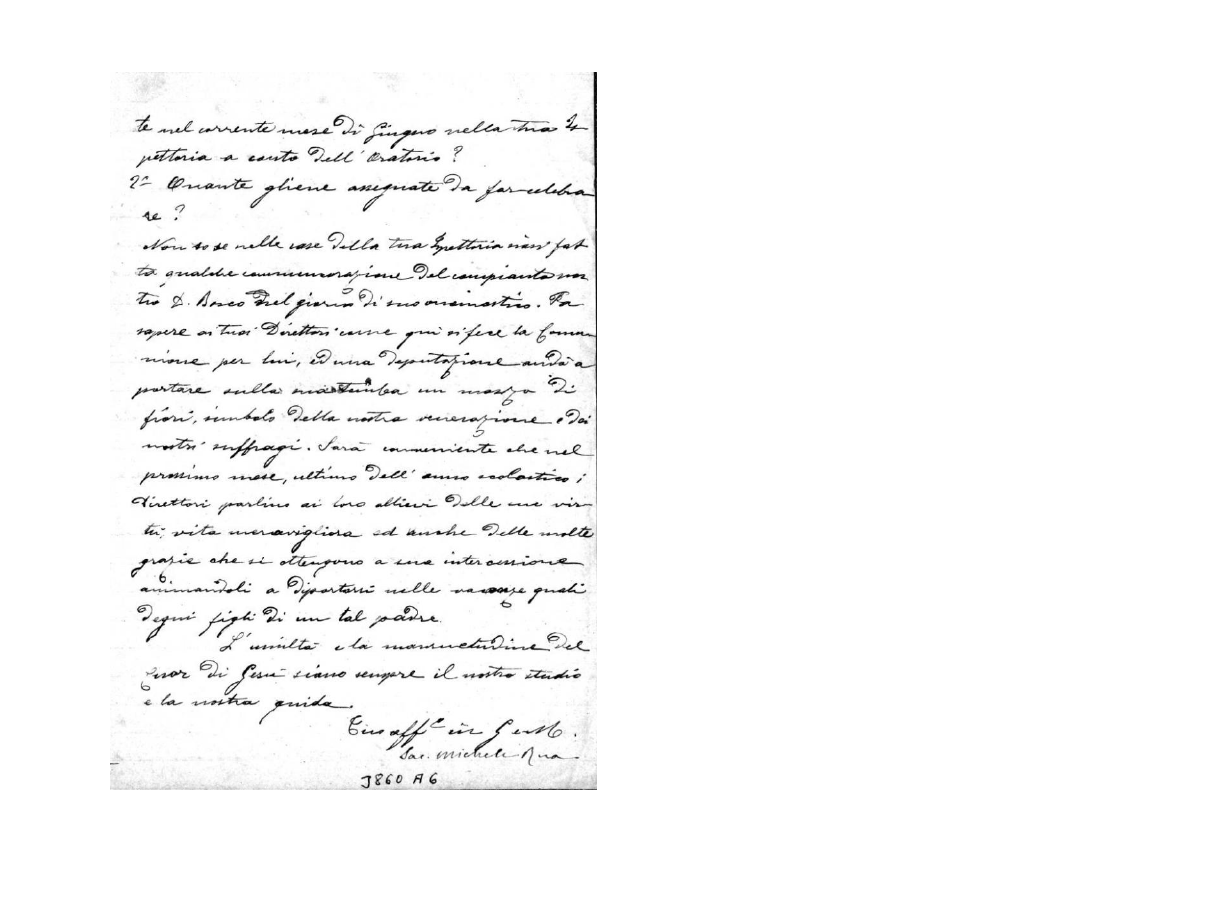 te nel corrente mese di Giugno nella tua Is
pettoria a conto dell' Oratorio?
2° Quante gliene assegnate da far celebra
re?
Non so se nelle case della tua Ispettoria siasi fat
ta qualche commemorazione del compianto nos
tro D. Bosco nel giorno di suo onomastico. Fa
sapere ai tuoi Direttori come qui si fece la Comu
nione per lui, ed una deputazione andò a
portare sulla sua tomba un mazzo di
fiori, simbolo della nostra venerazione e dei
nostri suffragi. Sarà conveniente che nel
prossimo mese, ultimo dell' anno scolastico i
Direttori parlino ai loro allievi delle sue vir
tù, vita meravigliosa ed anche delle molte
grazie che si ottengono a sua intercessione
animandoli a diportarsi nelle vacanze quali
degni figli di un tal padre.
L' umiltà e la mansuetudine del
Cuor di Gesù siano sempre il nostro studio
e la nostra guida.
Tuo aff° in G. e M.
Sac. Michele Rua
J860 A6